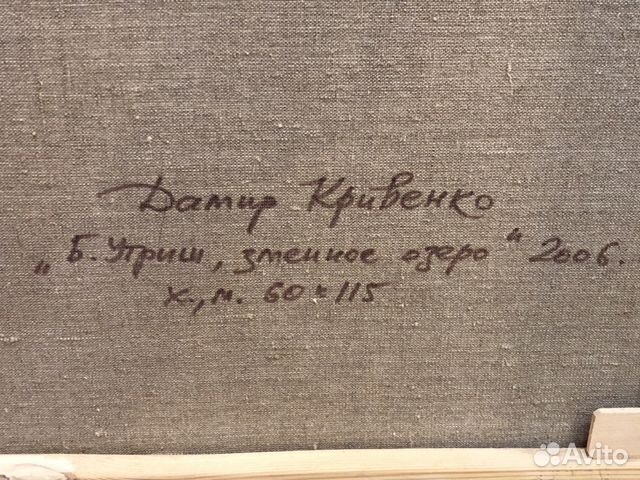 Дамир Кривенко
„Б. Утриш, змеиное озеро“ 2006.
х., м. 60 × 115
Avito